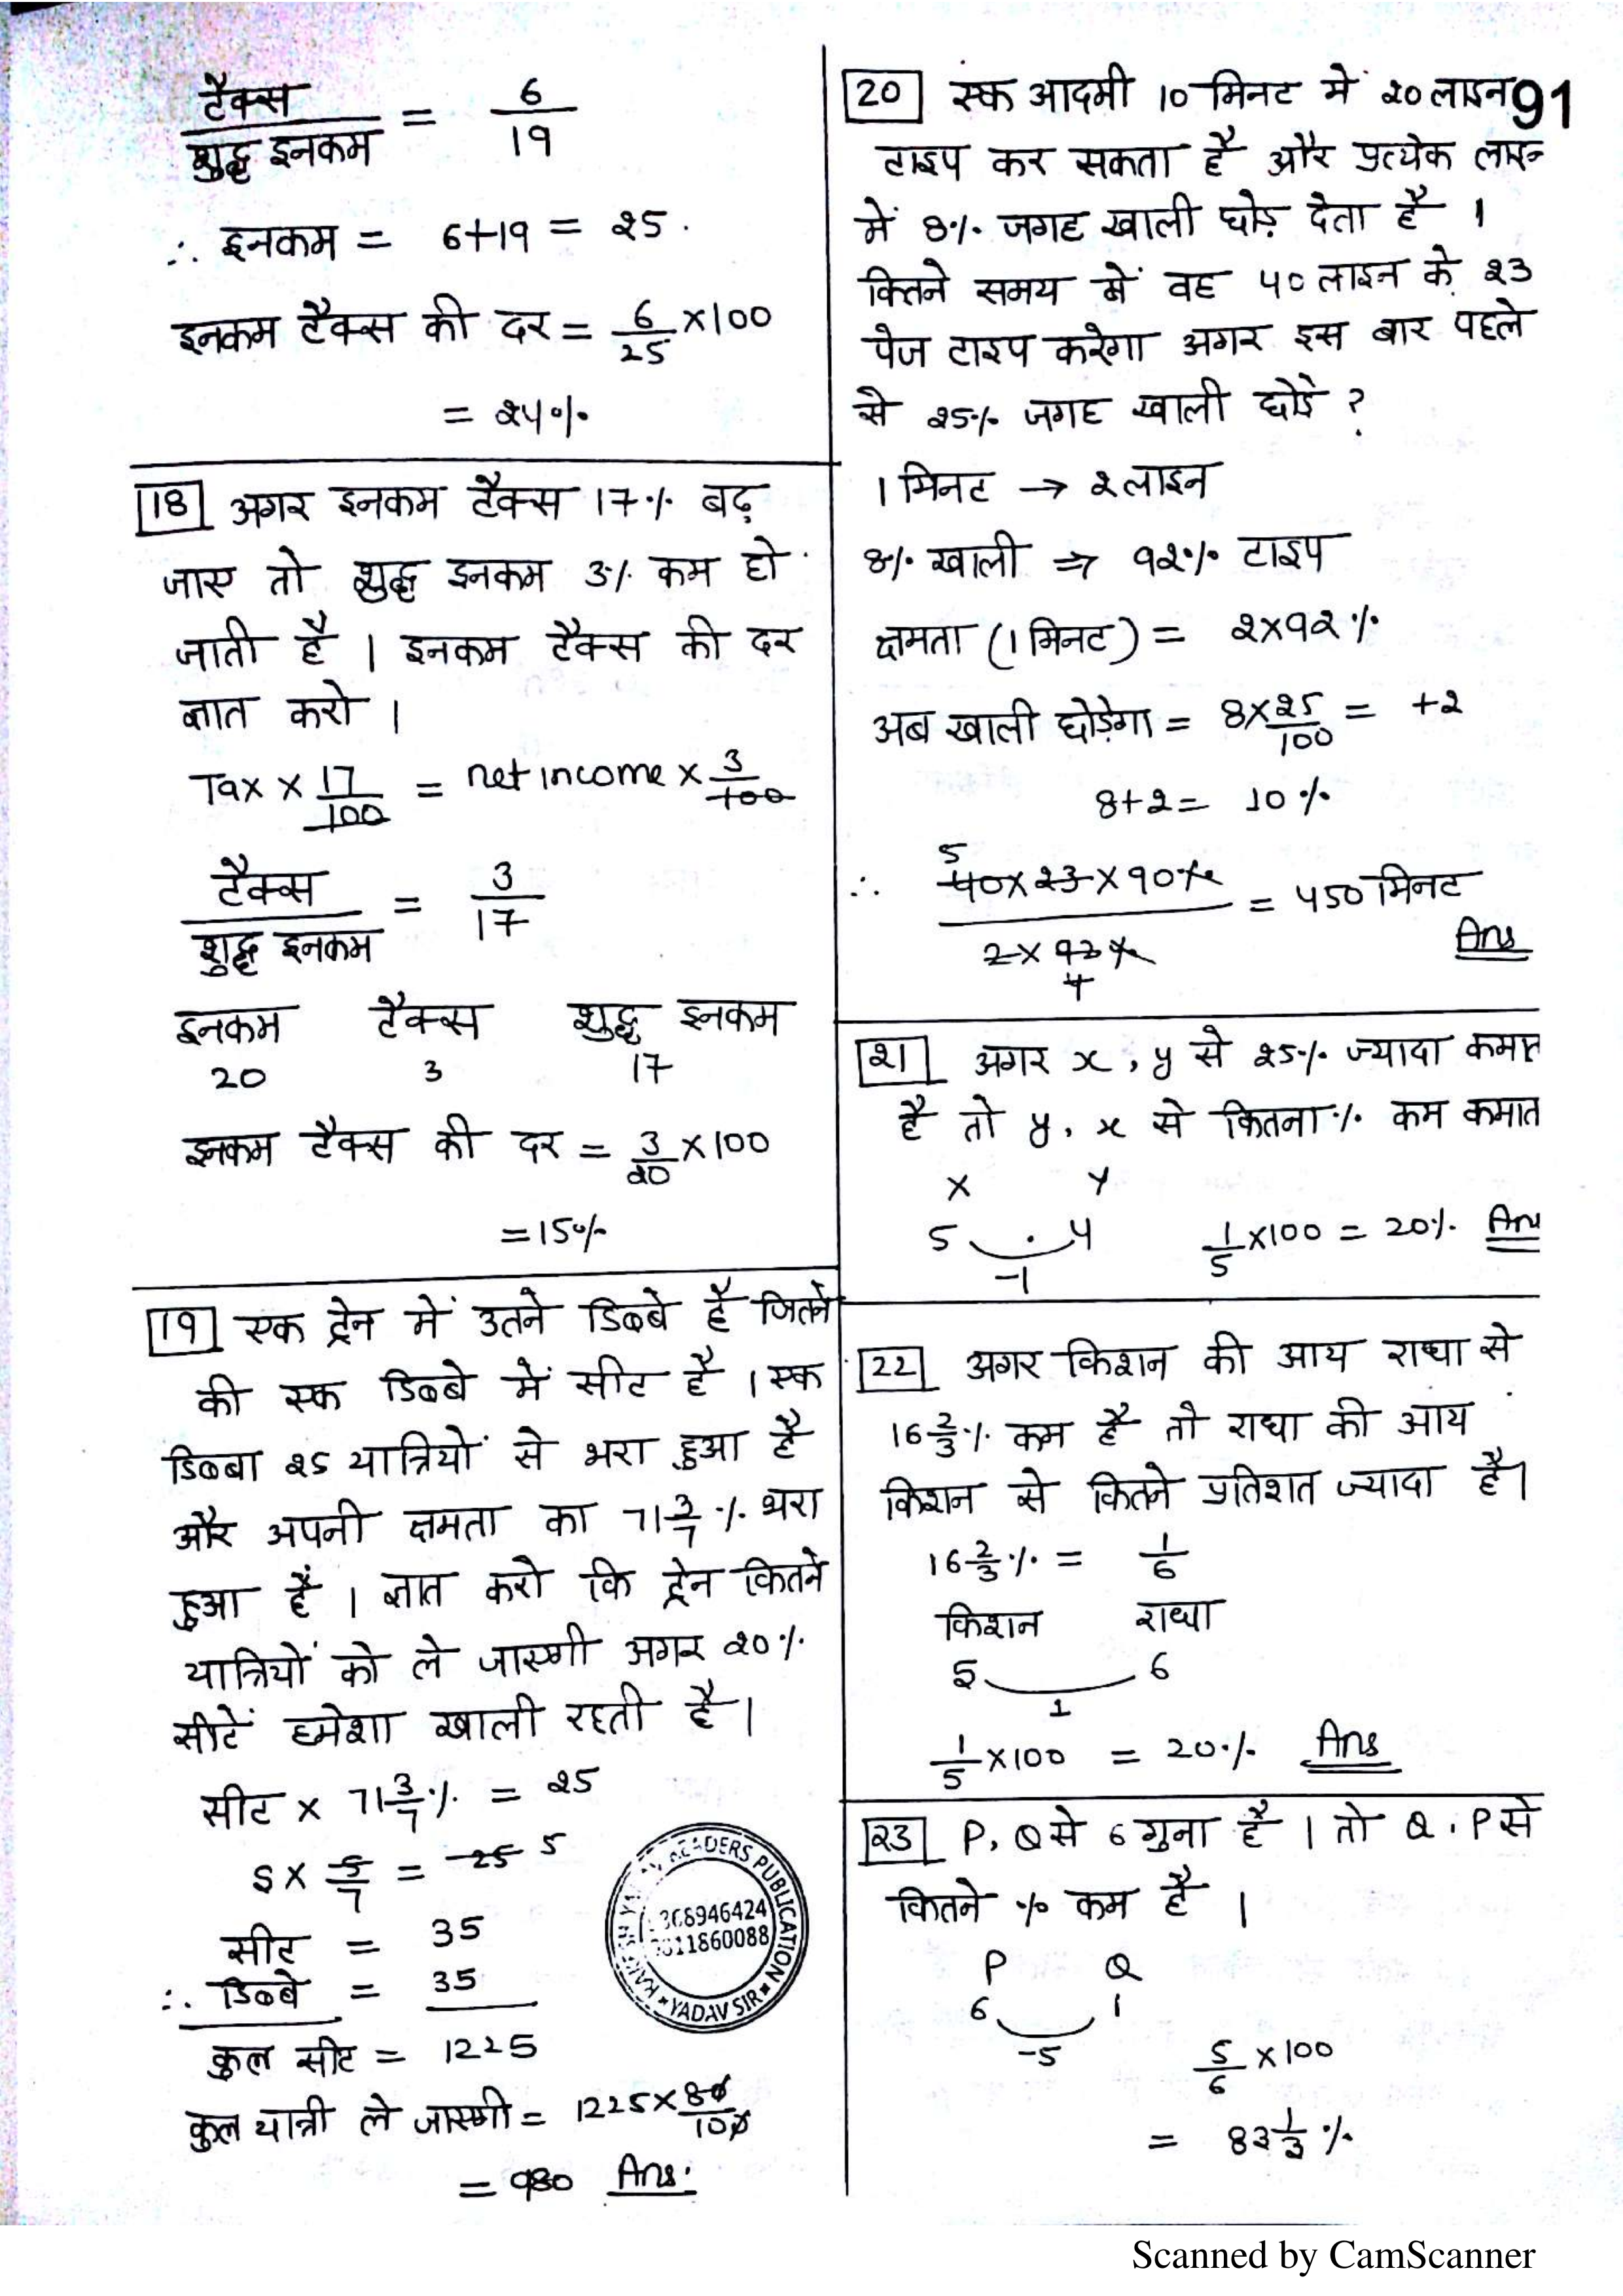 टैक्स / शुद्ध इनकम = 6/19
∴ इनकम = 6+19 = 25.
इनकम टैक्स की दर = 6/25 ×100
= 24%
18 अगर इनकम टैक्स 17% बढ़
जाए तो शुद्ध इनकम 3% कम हो
जाती है । इनकम टैक्स की दर
ज्ञात करो ।
Tax × 17/100 = net income × 3/100
टैक्स / शुद्ध इनकम = 3/17
इनकम टैक्स शुद्ध इनकम
20 3 17
इनकम टैक्स की दर = 3/20 ×100
=15%
19 एक ट्रेन में उतने डिब्बे है जितने
की एक डिब्बे में सीट है । एक
डिब्बा 25 यात्रियों से भरा हुआ है
और अपनी क्षमता का 71 3/7 % भरा
हुआ है । ज्ञात करो कि ट्रेन कितने
यात्रियों को ले जाएगी अगर 20%
सीटें हमेशा खाली रहती है ।
सीट × 71 3/7 % = 25
S × 5/7 = 25 5
सीट = 35
∴ डिब्बे = 35
कुल सीट = 1225
कुल यात्री ले जाएगी = 1225 × 80/100
= 980 Ans.
20 एक आदमी 10 मिनट में 20 लाइन 91
टाइप कर सकता है और प्रत्येक लाइन
में 8% जगह खाली छोड़ देता है ।
कितने समय में वह 40 लाइन के 23
पेज टाइप करेगा अगर इस बार पहले
से 25% जगह खाली छोड़े ?
1 मिनट → 2 लाइन
8% खाली ⇒ 92% टाइप
क्षमता (1 मिनट) = 2×92%
अब खाली छोड़ेगा = 8×25/100 = +2
8+2= 10%
∴ 5 40×23×90% / 2×92% 4 = 450 मिनट
Ans
21 अगर x, y से 25% ज्यादा कमात
है तो y, x से कितना % कम कमात
X Y
5 4 1/5 ×100 = 20% Ans
-1
22 अगर किशन की आय राधा से
16 2/3 % कम है तो राधा की आय
किशन से कितने प्रतिशत ज्यादा है।
16 2/3 % = 1/6
किशन राधा
5 6
1
1/5 ×100 = 20% Ans
23 P, Q से 6 गुना है । तो Q, P से
कितने % कम है ।
P Q
6 1
-5
5/6 ×100
= 83 1/3 %
READERS PUBLICATION
11860088
YADAV SIR
Scanned by CamScanner